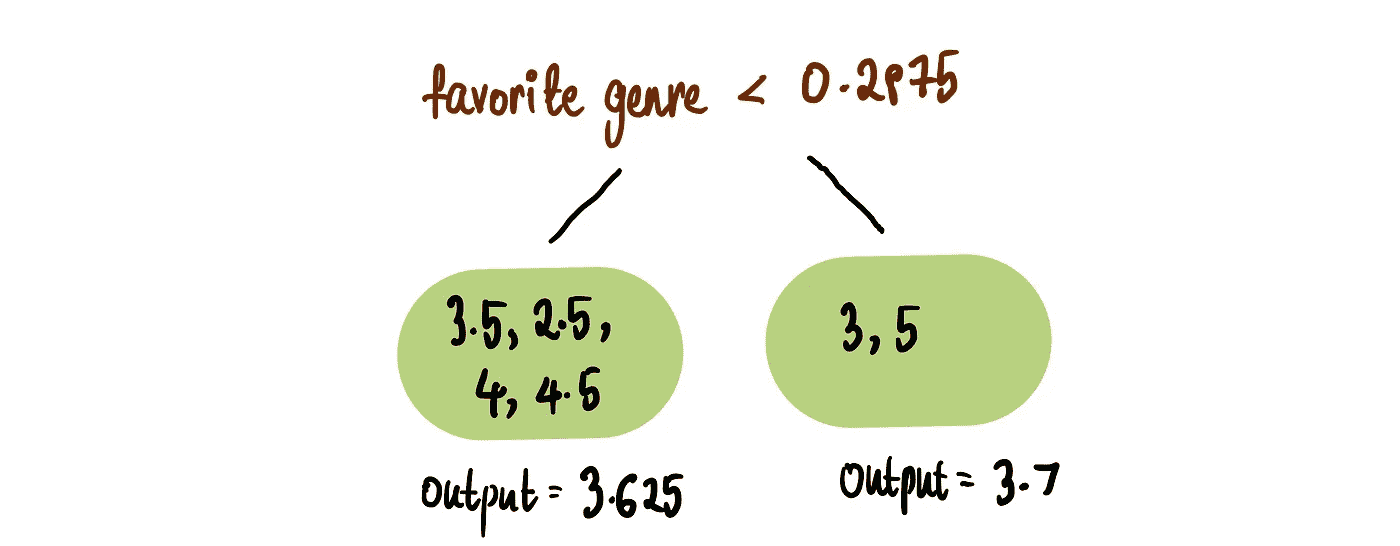 favorite genre < 0.2975
3.5, 2.5,
4, 4.5
3, 5
output = 3.625
output = 3.7